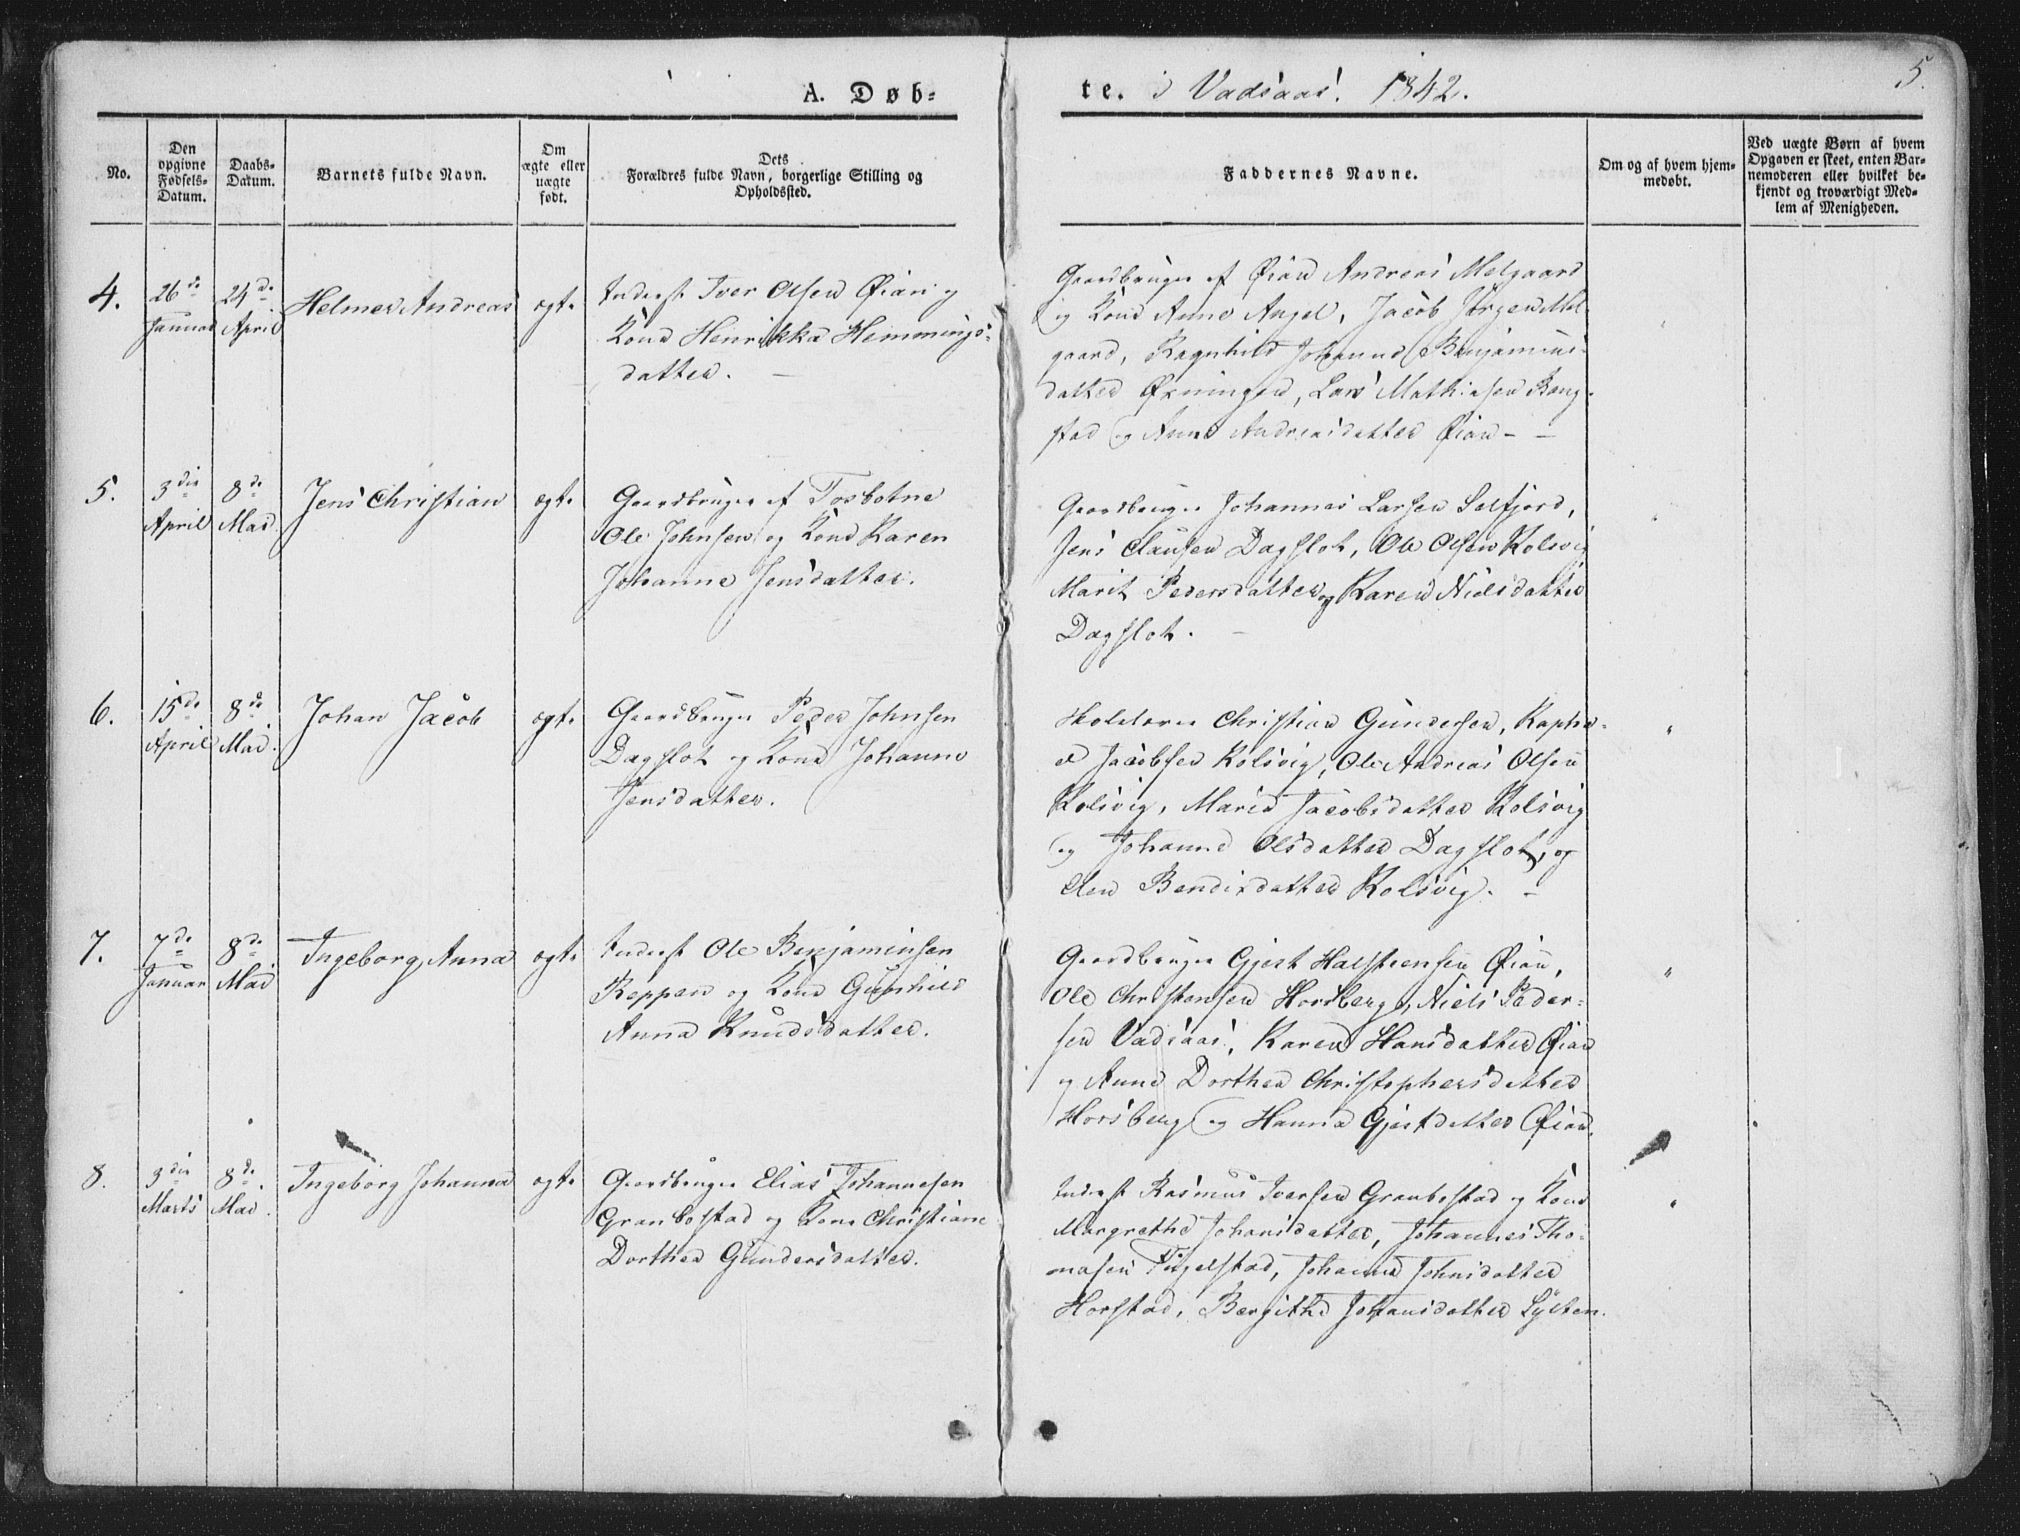 A. Døb-
te. i Vadsaas. 1842.
5.
No.
Den opgivne Fødsels-Datum.
Daabs-Datum.
Barnets fulde Navn.
Om ægte eller uægte født.
Dets Forældres fulde Navn, borgerlige Stilling og Opholdssted.
Faddernes Navne.
Om og af hvem hjem-meddøbt.
Ved uægte Børn af hvem Opgaven er skeet, enten Bar-nemoderen eller hvilket be-kjendt og troværdigt Med-lem af Menigheden.
4.
26de Januar
24de April
Helmer Andreas
ægte
Inderst Iver Olsen Øian og
Kone Henrikka Hemmings-
datter.
Gaardbruger af Øian Andreas Melgaard
og Kone Anne Angel, Jacob Jørgen Mel-
gaard, Ragnhild Johanne Benjamins-
datter Øxningen, Lars Mathiasen Bang-
stad og Anne Andreasdatter Øian
5.
3die April
8de Mai
Jens Christian
ægte
Gaardbruger af Tosbotne
Ole Johnsen og Kone Karen
Johanne Jensdatter.
Gaardbruger Johannes Larsen Solfjord,
Jens Clausen Dagslot, Ole Olsen Kolsvig
Marit Pedersdatter og Karen Nielsdatter
Dagslot.
6.
15de April
8de Mai
Johan Jacob
ægte
Gaardbruger Peder Johnsen
Dagslot og Kone Johanne
Jensdatter.
Skolelærer Christian Gundersen, Rapha-
el Jacobsen Kolsvig, Ole Andreas Olsen
Kolsvig, Maria Jacobsdatter Kolsvig
og Johanne Olsdatter Dagslot, og
Elen Bendixdatter Kolsvig.
7.
7de Januar
8de Mai
Ingeborg Anna
ægte
Inderst Ole Benjaminsen
Reppen og Kone Gunhild
Anna Knudsdatter.
Gaardbruger Gjert Halsteensen Øian,
Ole Christensen Horsberg, Niels Peder-
sen Vadsaas, Karen Hansdatter Øian
og Anne Dorthea Christophersdatter
Horsberg og Hanna Gjertdatter Øian.
8.
3die Marts
8de Mai
Ingeborg Johanna
ægte
Gaardbruger Elias Johannesen
Granbostad og Kone Christiane
Dorthea Gundersdatter.
Inderst Rasmus Iversen Granbostad og Kone
Margrethe Johansdatter, Johannes Tho-
masen Tilgelstad, Johanna Johnsdatter
Horstad, Bergithe Johansdatter Sylten.